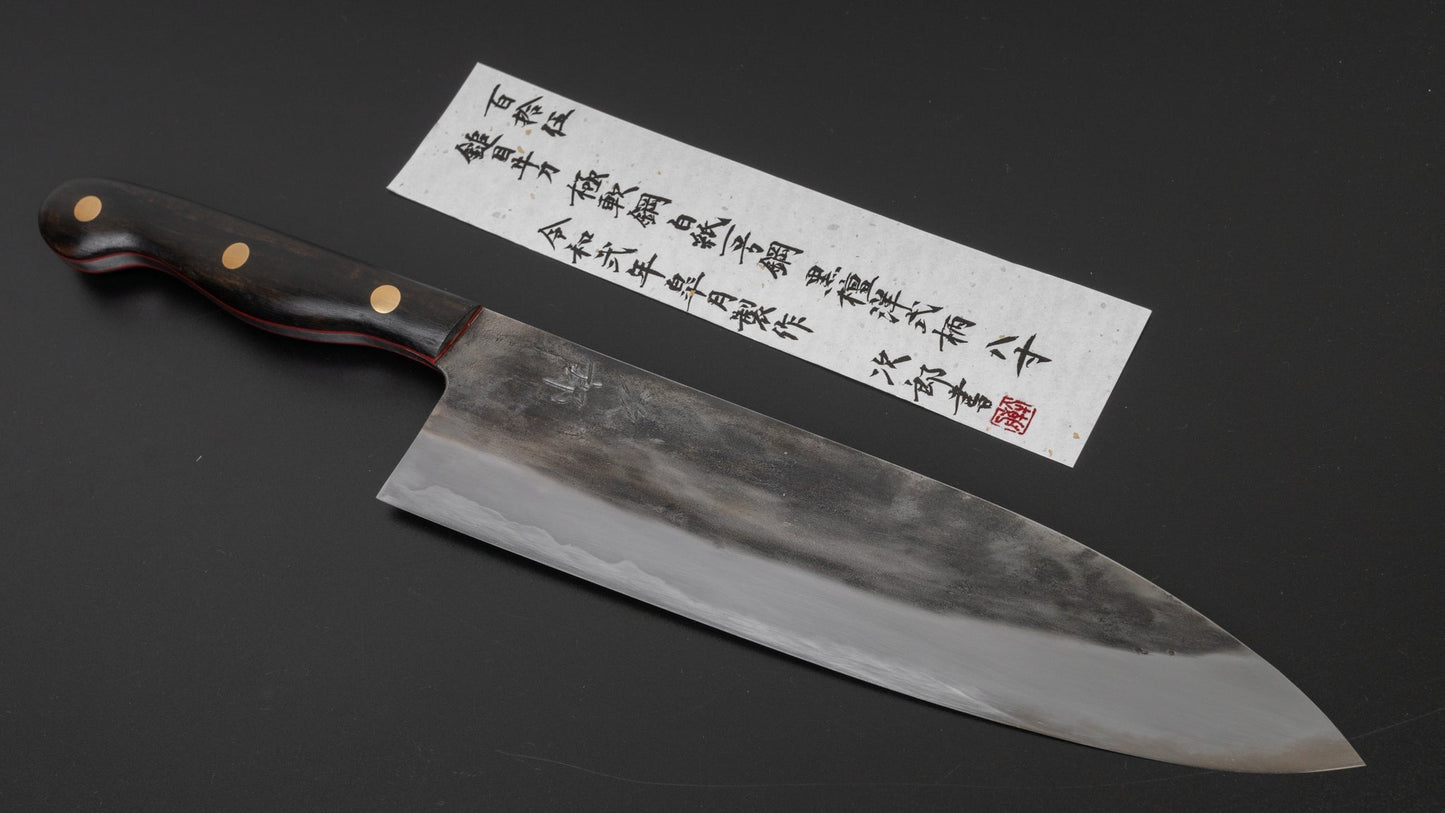 百拾伍
鎚目牛刀 極軟鋼 白紙一号鋼 黒檀洋式柄 八寸
令和弐年皐月製作 次郎書